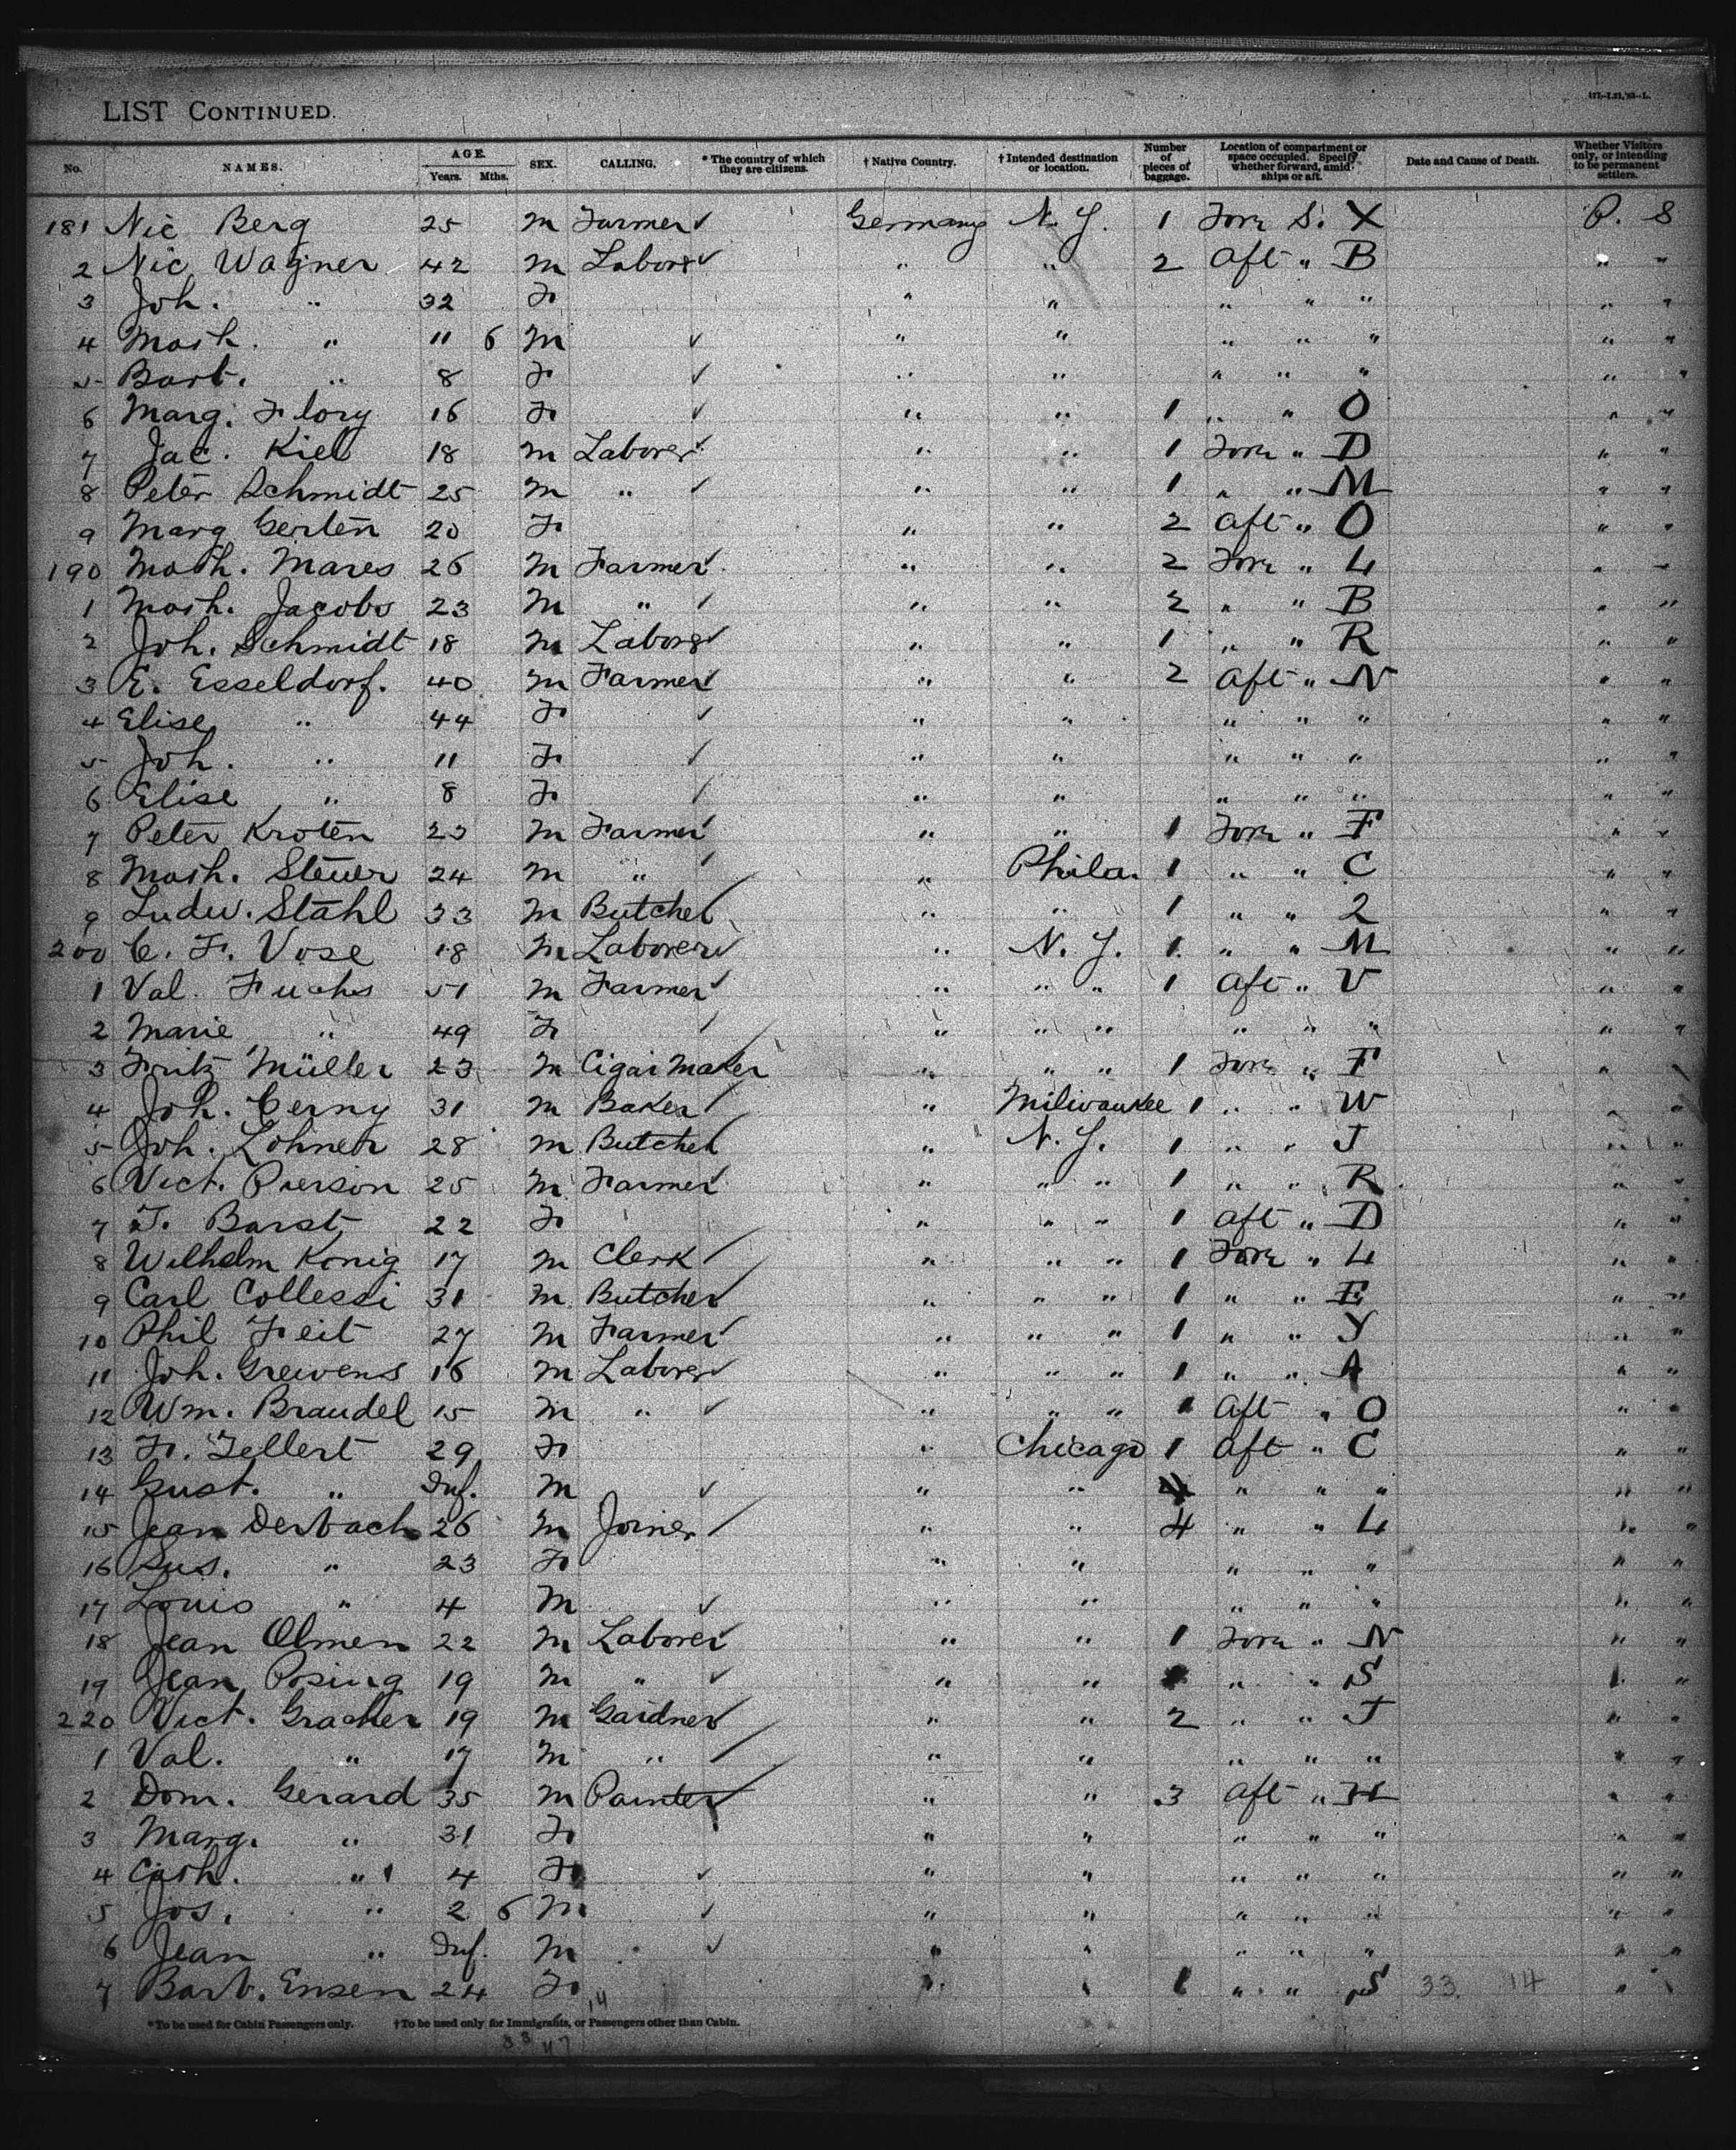 LIST CONTINUED.
No. NAMES. AGE. Years. Mths. SEX. CALLING. * The country of which they are citizens. † Native Country. † Intended destination or location. Number of pieces of baggage. Location of compartment or space occupied. Specify whether forward, amidships or aft. Date and Cause of Death. Whether Visitors only, or intending to be permanent settlers.
181 Nic Berg 25 M Farmer Germany N. Y. 1 Forw S. X P. S
2 Nic Wagner 42 M Laborer " " 2 Aft " B " "
3 Joh. " 32 F " " " " " " "
4 Math. " 11 6 M " " " " " " "
5 Barb. " 8 F " " " " " " "
6 Marg. Flory 16 F " " 1 " " O " "
7 Jac. Kiel 18 M Laborer " " 1 Forw " D " "
8 Peter Schmidt 25 M " " " 1 " " M " "
9 Marg Gerten 20 F " " 2 Aft " O " "
190 Math. Mares 26 M Farmer " " 2 Forw " L " "
1 Math. Jacobs 23 M " " " 2 " " B " "
2 Joh. Schmidt 18 M Laborer " " 1 " " R " "
3 E. Esseldorf. 40 M Farmer " " 2 Aft " N " "
4 Elise " 44 F " " " " " " "
5 Joh. " 11 F " " " " " " "
6 Elise " 8 F " " " " " " "
7 Peter Kroten 23 M Farmer " " 1 Forw " F " "
8 Math. Steuer 24 M " " Phila. 1 " " C " "
9 Ludw. Stahl 33 M Butcher " " 1 " " 2 " "
200 C. F. Vose 18 M Laborer " N. Y. 1 " " M " "
1 Val. Fuchs 51 M Farmer " " " 1 Aft " V " "
2 Marie " 49 F " " " " " " " "
3 Fritz Müller 23 M Cigar Maker " " " 1 Forw " F " "
4 Joh. Cerny 31 M Baker " Milwaukee 1 " " W " "
5 Joh. Lohner 28 M Butcher " N. Y. 1 " " J " "
6 Vict. Pierson 25 M Farmer " " " 1 " " R " "
7 T. Barst 22 F " " " 1 Aft " D " "
8 Wilhelm Konig 17 M Clerk " " " 1 Forw " L " "
9 Carl Collessi 31 M Butcher " " " 1 " " E " "
10 Phil Feit 27 M Farmer " " " 1 " " Y " "
11 Joh. Grewens 16 M Laborer " " " 1 " " A " "
12 Wm. Braudel 15 M " " " " 1 Aft " O " "
13 F. Zellert 29 F " Chicago 1 Aft " C " "
14 Gust. " Inf. M " " " " " " "
15 Jean Derbach 26 M Joiner " " 4 " " L " "
16 Sus. " 23 F " " " " " " "
17 Louis " 4 M " " " " " " "
18 Jean Olmen 22 M Laborer " " 1 Forw " N " "
19 Jean Posing 19 M " " " " " S " "
220 Vict. Gracher 19 M Gardner " " 2 " " J " "
1 Val. " 17 M " " " " " " " "
2 Dom. Gerard 35 M Painter " " 3 Aft " H " "
3 Marg. " 31 F " " " " " " "
4 Cath. " 4 F " " " " " " "
5 Jos. " 2 6 M " " " " " " "
6 Jean " Inf. M " " " " " " "
7 Barb. Ensen 24 F " " 1 " " S 33. 14 " "
14
* To be used for Cabin Passengers only. † To be used only for Immigrants, or Passengers other than Cabin.
33 47